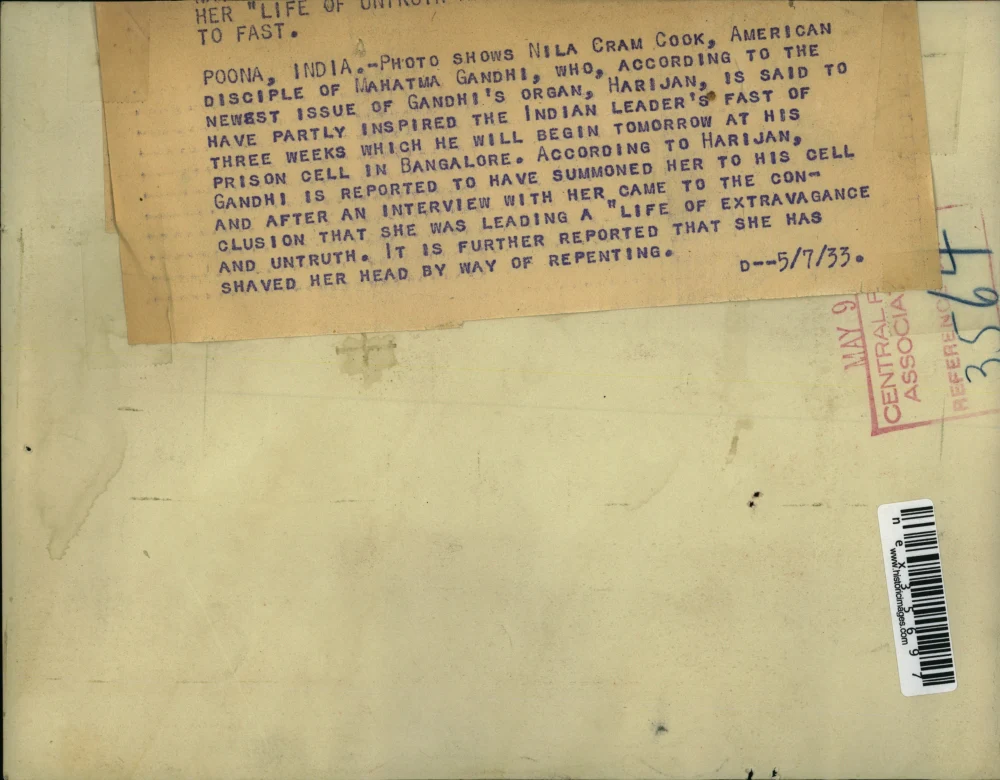 HER "LIFE OF UNTRUTH
TO FAST.
POONA, INDIA.-PHOTO SHOWS NILA CRAM COOK, AMERICAN
DISCIPLE OF MAHATMA GANDHI, WHO, ACCORDING TO THE
NEWEST ISSUE OF GANDHI'S ORGAN, HARIJAN, IS SAID TO
HAVE PARTLY INSPIRED THE INDIAN LEADER'S FAST OF
THREE WEEKS WHICH HE WILL BEGIN TOMORROW AT HIS
PRISON CELL IN BANGALORE. ACCORDING TO HARIJAN,
GANDHI IS REPORTED TO HAVE SUMMONED HER TO HIS CELL
AND AFTER AN INTERVIEW WITH HER CAME TO THE CON-
CLUSION THAT SHE WAS LEADING A "LIFE OF EXTRAVAGANCE
AND UNTRUTH. IT IS FURTHER REPORTED THAT SHE HAS
SHAVED HER HEAD BY WAY OF REPENTING.
D--5/7/33.
MAY 9
CENTRAL P
ASSOCIA
REFERENC
3564
nex35697
www.historicimages.com